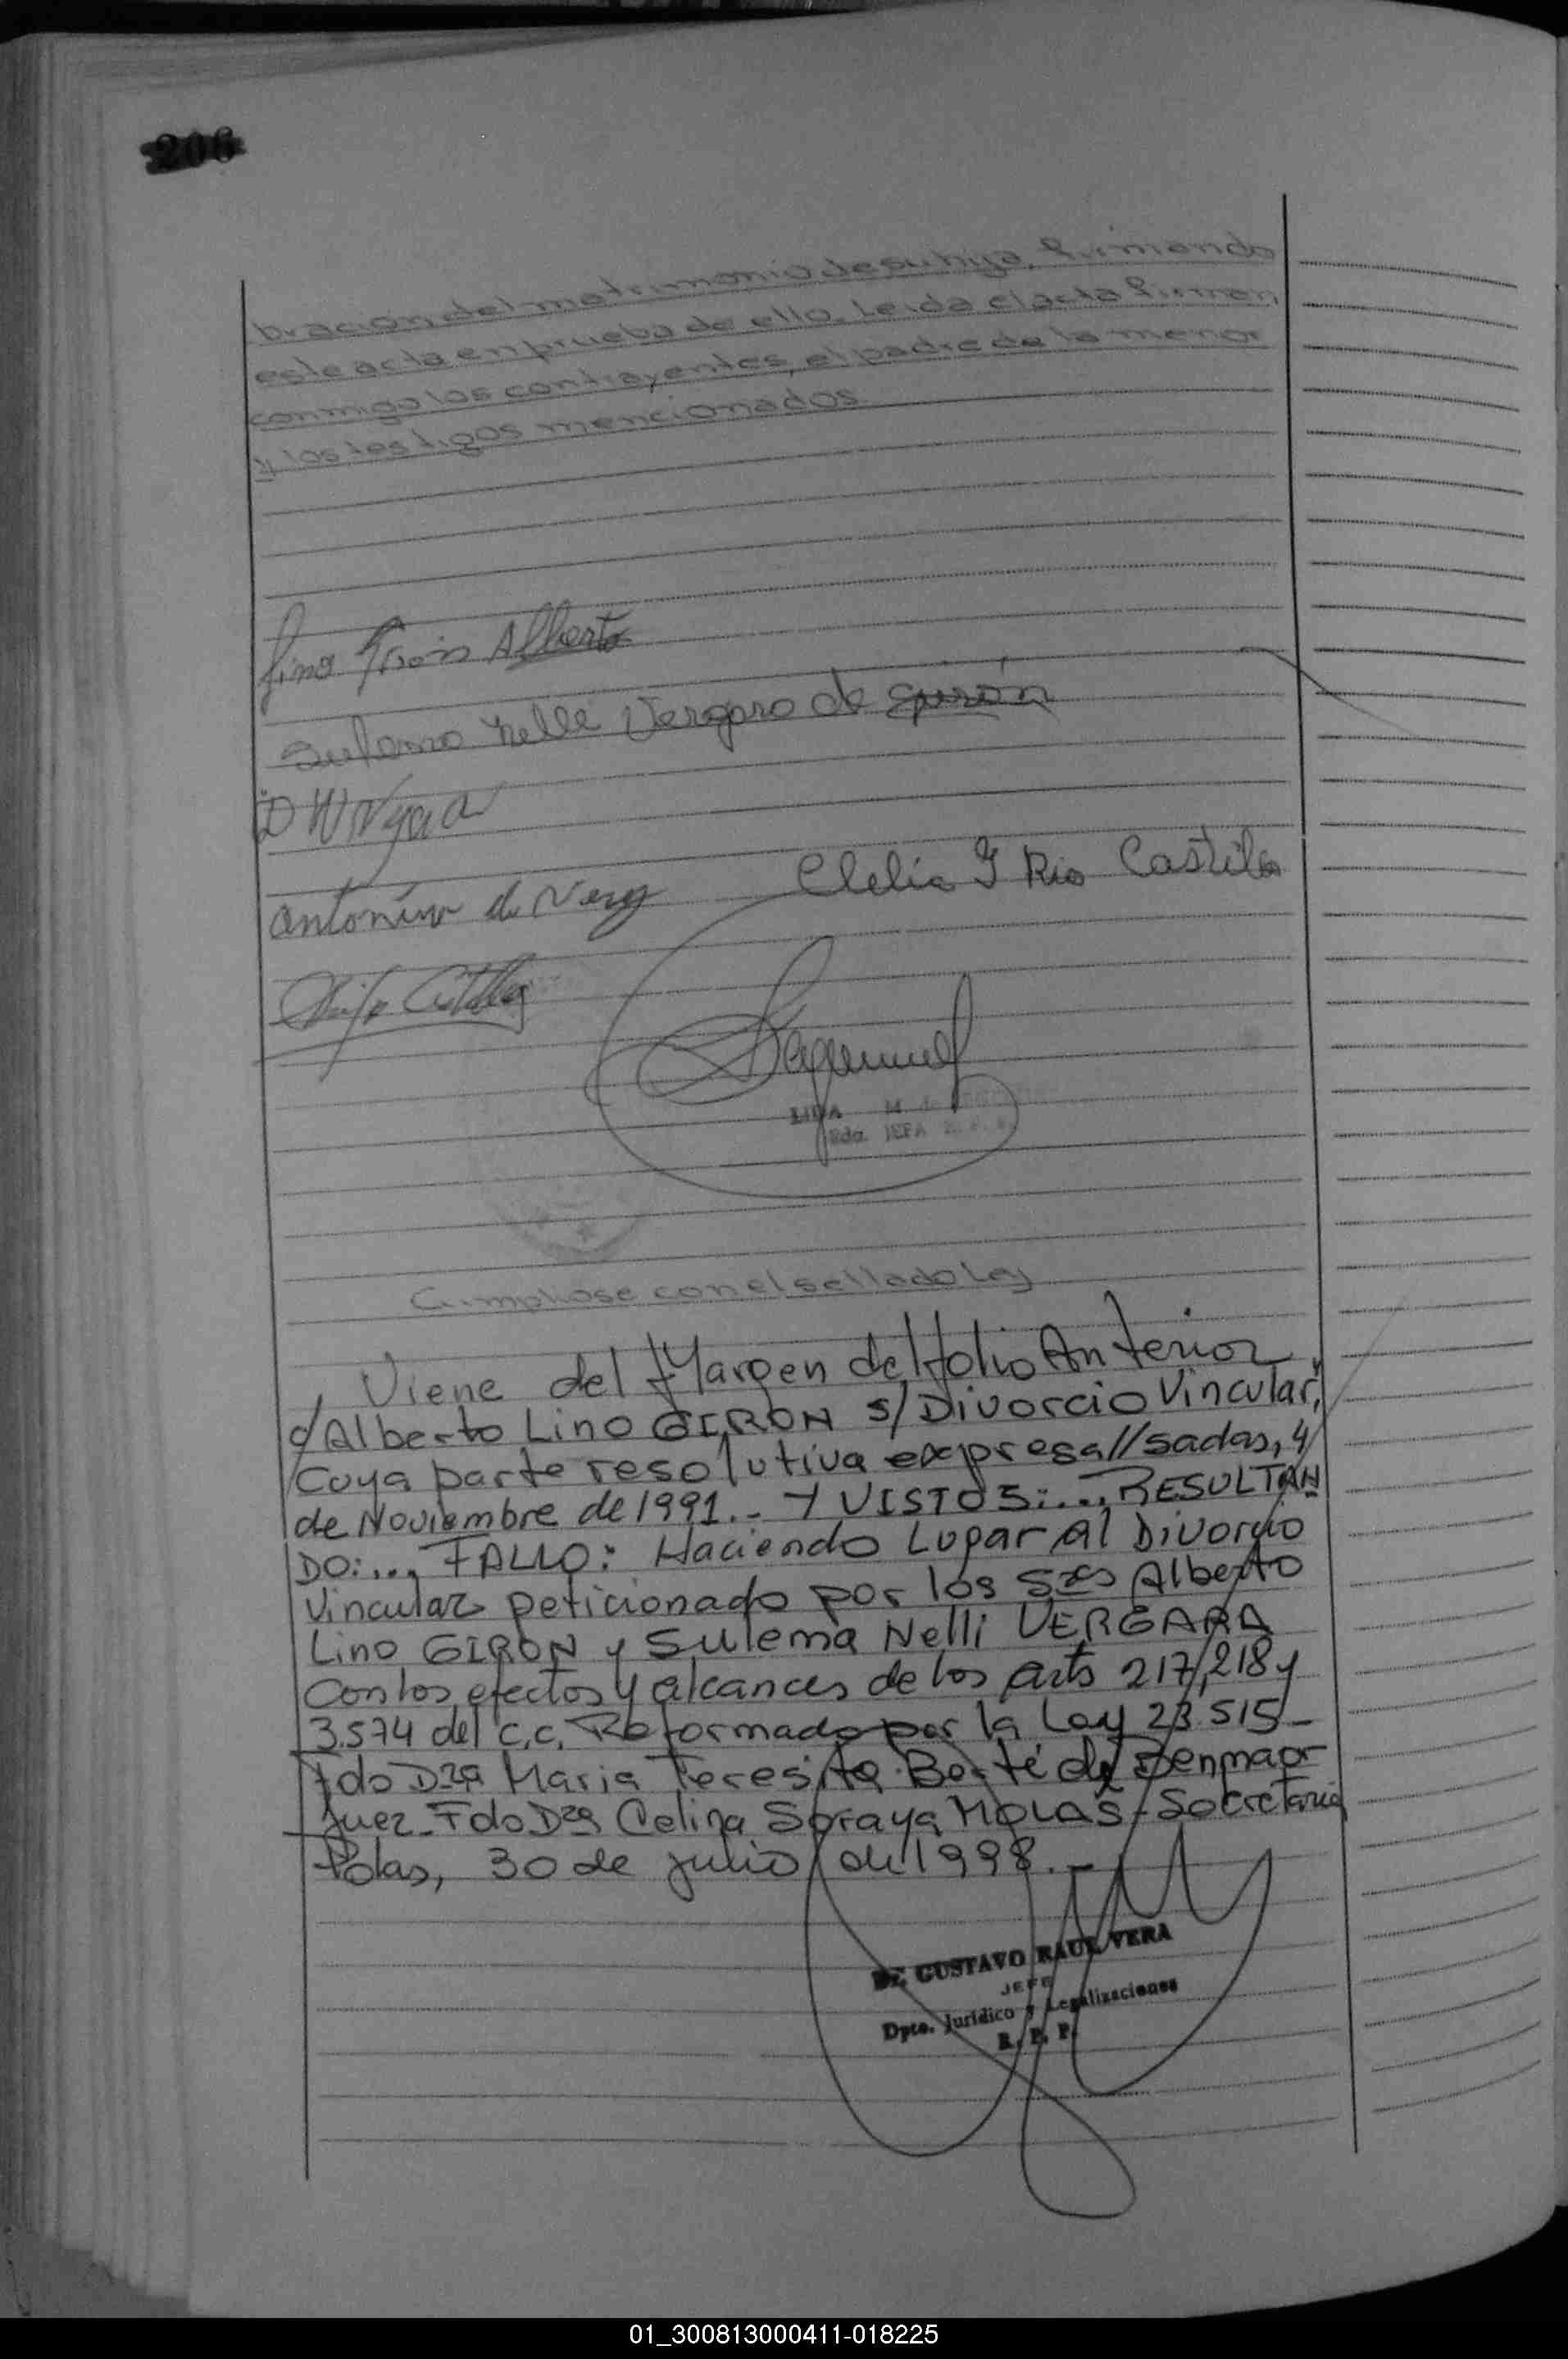 206
bracion del matrimonio de su hija, firmando
este acta en prueba de ello. Leida el acta firman
conmigo los contrayentes, el padre de la menor
y los testigos mencionados
Lino Giron Alberto
Sulema Nelli Vergara de Girón
Antonino de Verg
Clelia Y Rio Castillo
LIDA M. de
JEFA
Cumpliose con el sellado Ley
Viene del Margen del folio Anterior
c/Alberto Lino GIRON s/Divorcio Vincular,
Cuya parte resolutiva expresa//sadas, 4
de Noviembre de 1991.. Y VISTOS:..., RESULTAN
DO:..., FALLO: Haciendo Lugar al Divorcio
Vincular peticionado por los Sres Alberto
Lino GIRON y Sulema Nelli VERGARA
Con los efectos y alcances de los arts 217, 218 y
3.574 del C.C. Reformado por la Ley 23.515-
Fdo Dra Maria Teresita Berté de Benmaor
Juez- Fdo Dra Celina Soraya MOLAS- Secretaria
Pdas, 30 de julio de 1998.-
Dr. GUSTAVO RAUL VERA
JEFE
Dpto. Jurídico y Legalizaciones
R. P. P.
01_300813000411-018225